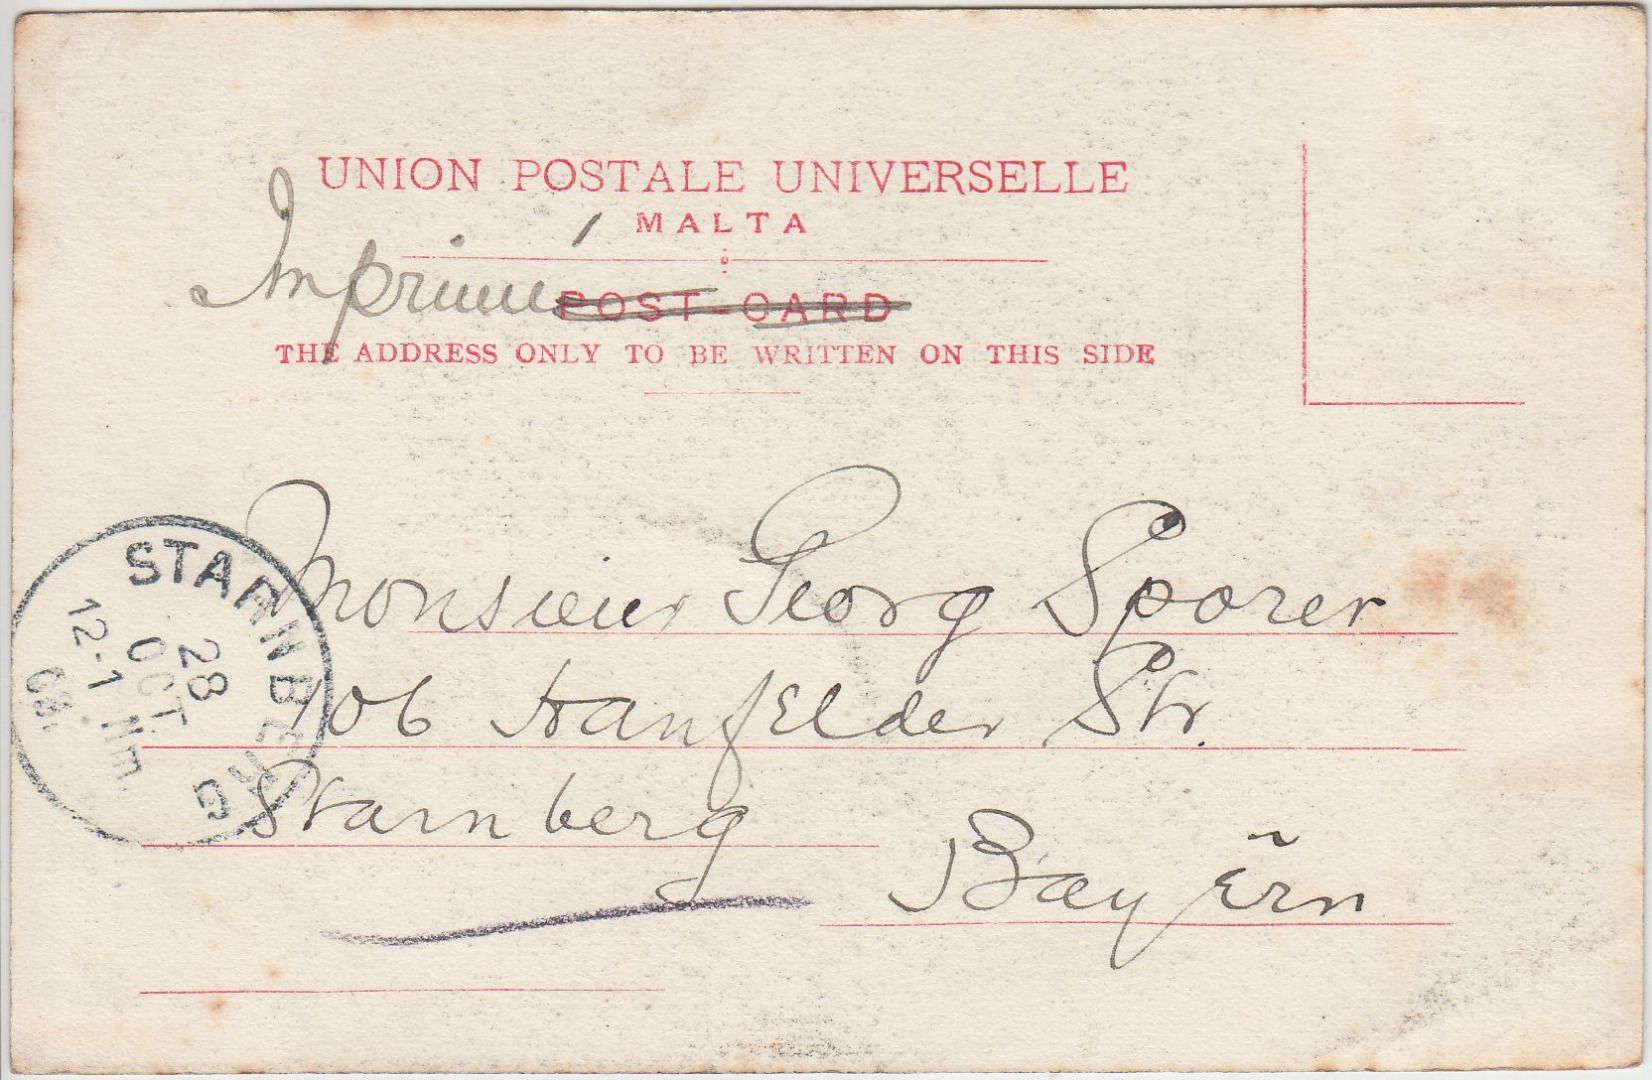 UNION POSTALE UNIVERSELLE
MALTA
Imprimé
POST-CARD
THE ADDRESS ONLY TO BE WRITTEN ON THIS SIDE
Monsieur Georg Sporer
106 Hanfelder Str.
Starnberg
Bayern
STARNBERG
28
OCT
12-1 Nm.